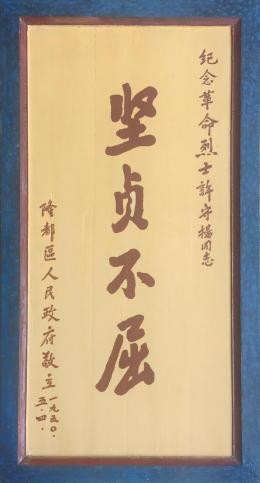 纪念革命烈士許守楊同志
坚贞不屈
隆都區人民政府敬立
一九五〇.
五.四.